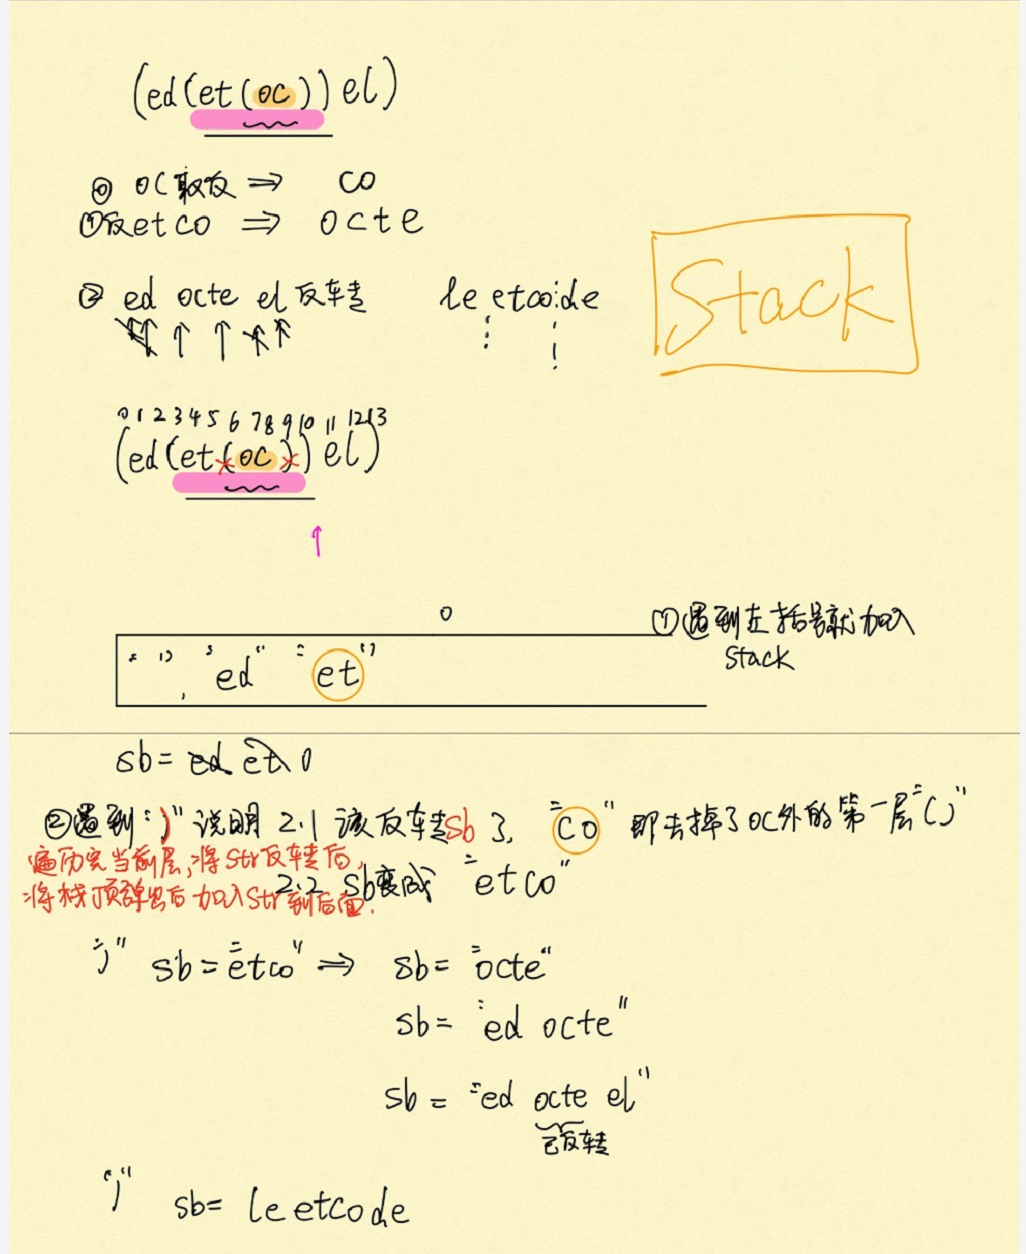 (ed(et(oc))el)
⓪ oc取反 ⇒ co
①反etco ⇒ octe
② ed octe el 反转 leetcode
Stack
0 1 2 3 4 5 6 7 8 9 10 11 12 13
(ed(et(oc))el)
0
①遇到左括号就加入
stack
"", "ed" "et"
sb= ed et o
②遇到")"说明 2.1 该反转sb了, "co" 即去掉了oc外的第一层"()"
遍历完当前层,将str反转后,
将栈顶弹出后加入str到后面.
2.2 sb变成 "etco"
")" sb="etco" ⇒ sb= "octe"
sb= "ed octe"
sb= "ed octe el"
已反转
")" sb= leetcode